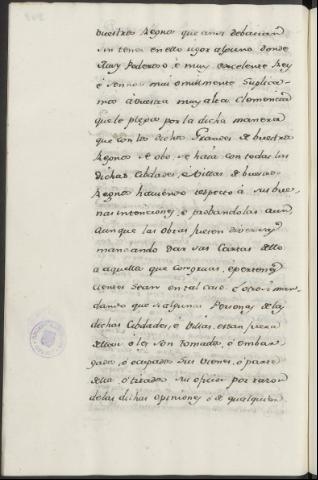 vuestros Regnos que a nos debacian
sin tener en ello vigor alguno donde
Muy Poderoso é muy excelente Rey
é Señor mui omilmente suplica-
mos á vuestra muy alta Clemencia
que le plega por la dicha manera
que con los dichos Grandes de vuestros
Regnos se obo se haia con todas las
dichas Cibdades, e Villas de vuestros
Regnos haviendo respeto á sus bue-
nas intenciones, é probandolas aun
aunque las obras fuesen diversas
mandando dar sus Cartas dello
a aquellas que congruas, é pertenes-
cientes sean en tal caso é otrosi man-
dando que si algunas Personas de las
dichas Cibdades, e Villas, estan fuera
dellas ó les son tomados, ó embar-
gados, ó ocupados sus vienes, ó parte
dellos ó tirados sus oficios por razon
de las dichas opiniones ó de qualquier